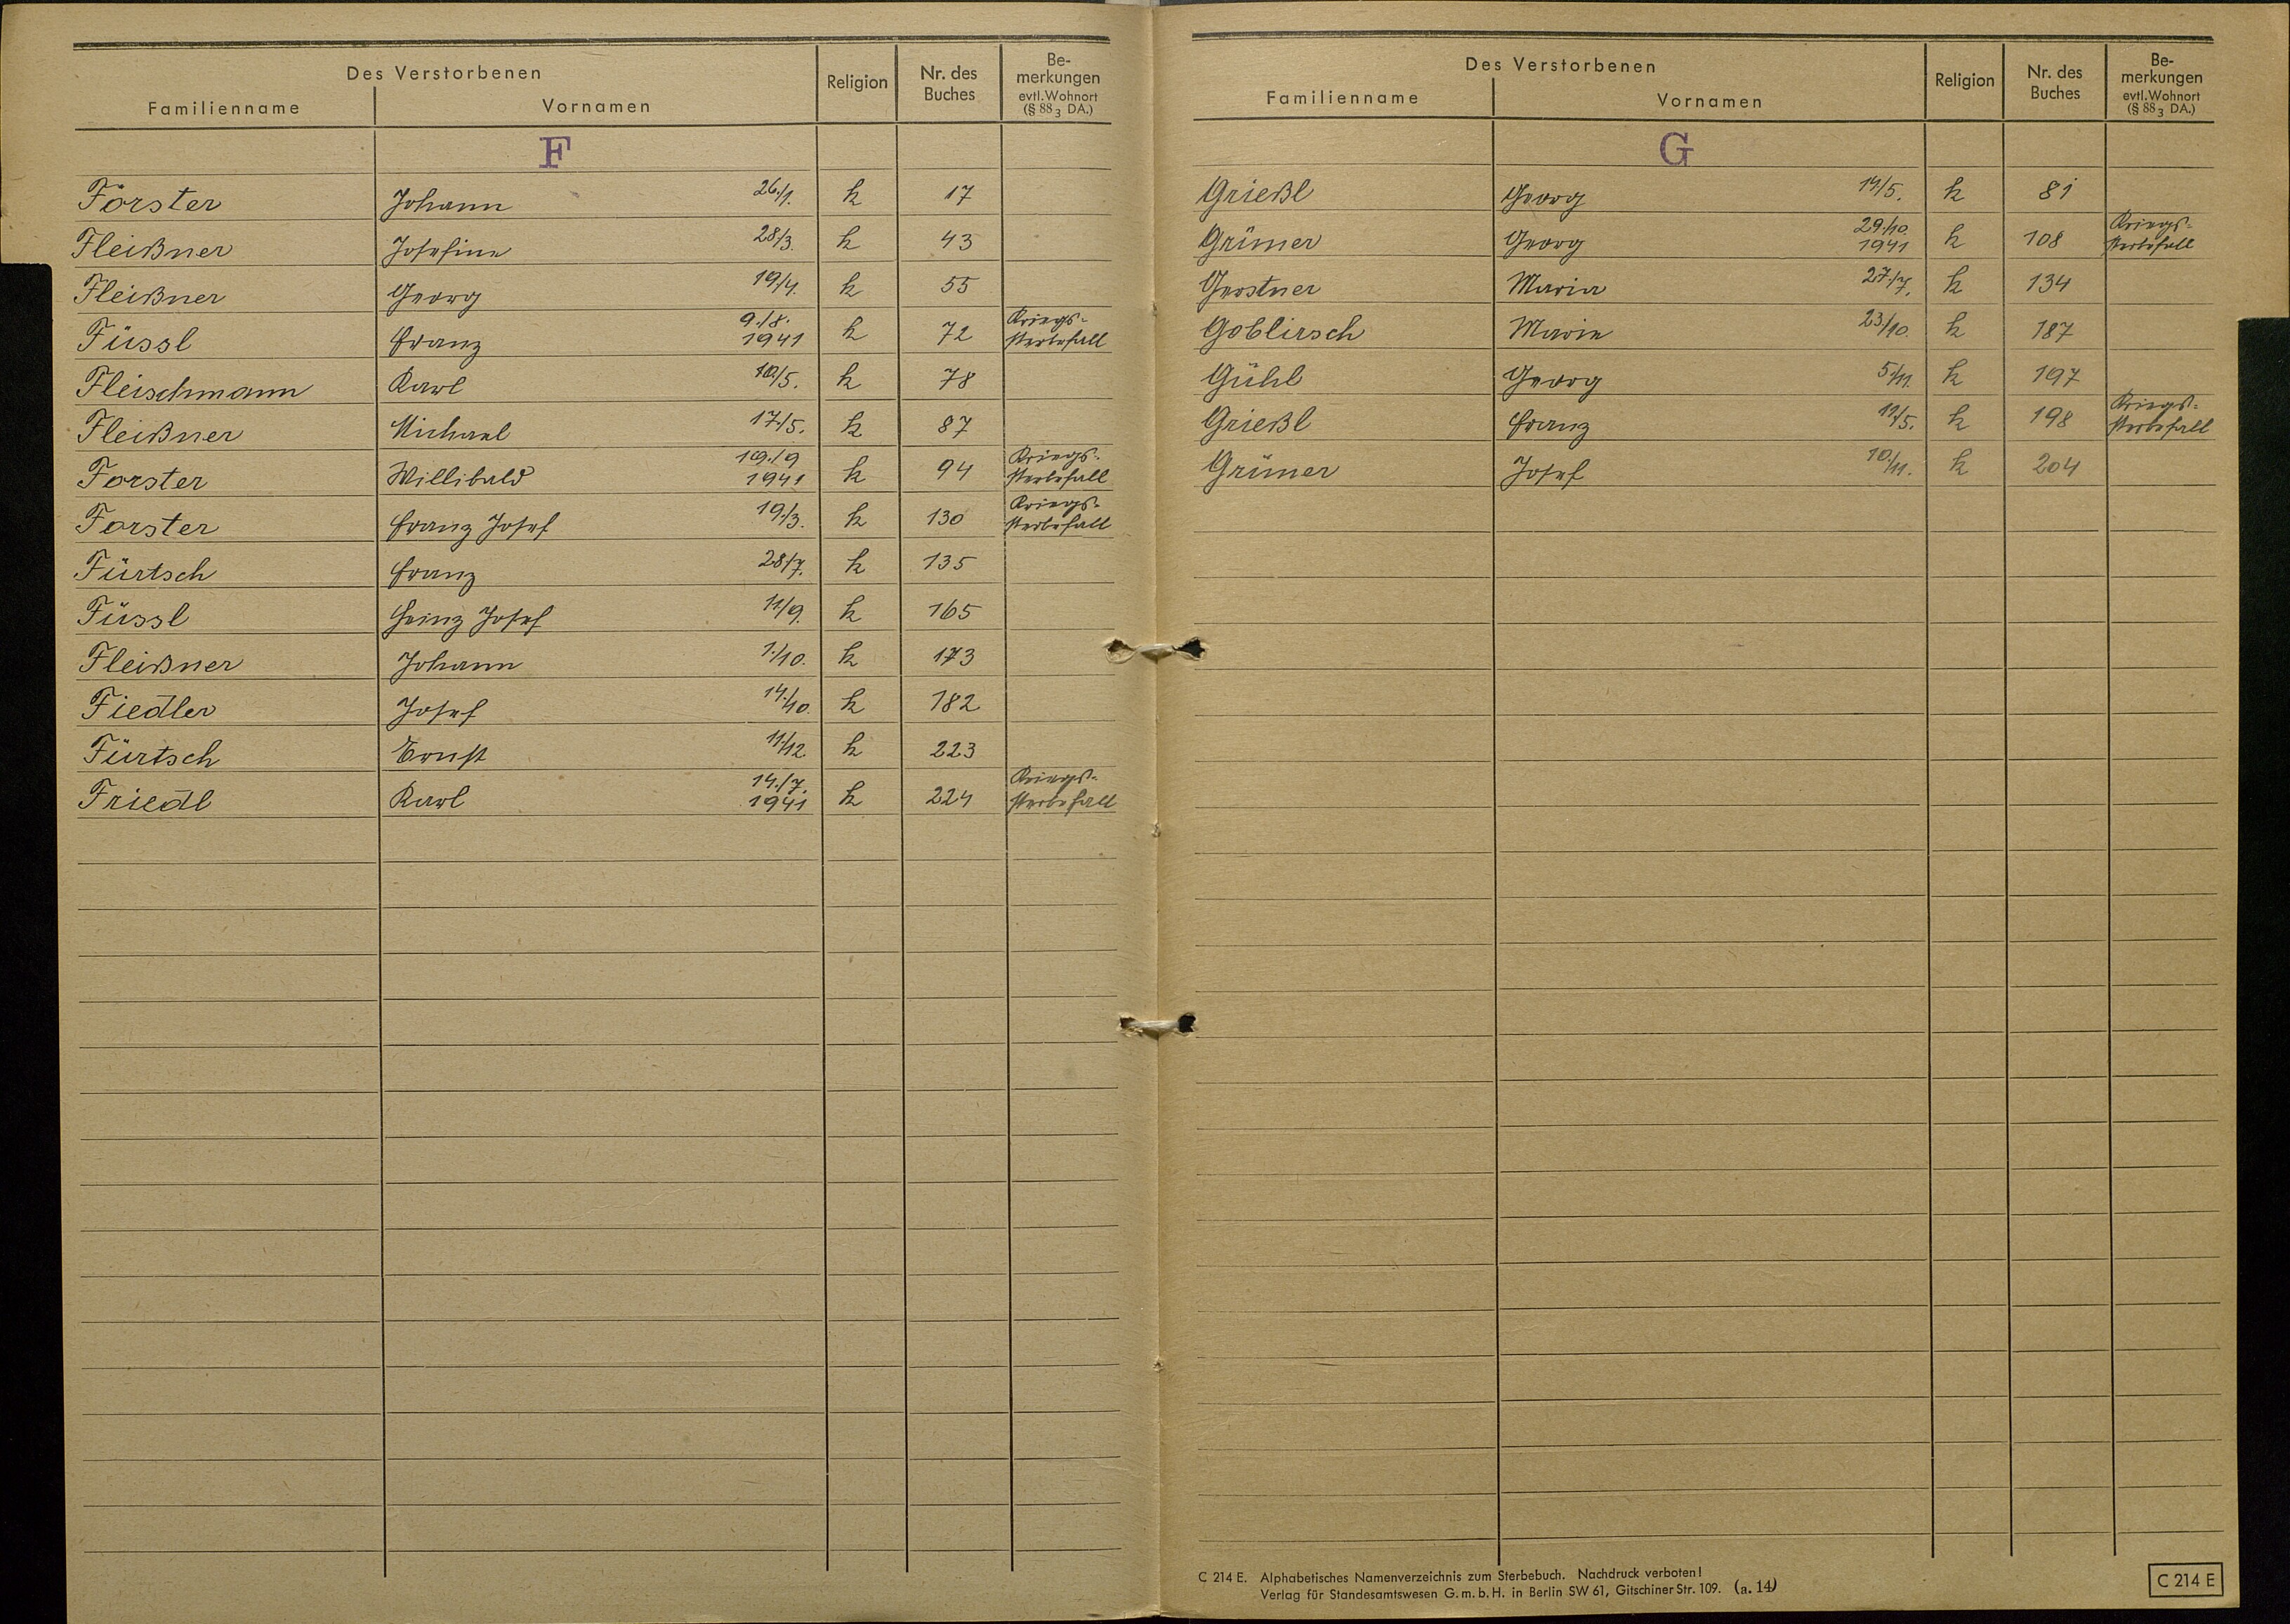 Des Verstorbenen Religion Nr. des Buches Be-merkungen evtl. Wohnort (§ 88 3 DA.)
Familienname Vornamen
F
Förster Johann 26./1. k 17
Fleißner Josefine 28/3. k 43
Fleißner Georg 19/4. k 55
Füssl Franz 9./8. 1941 k 72 Kriegs-sterbefall
Fleischmann Karl 10/5. k 78
Fleißner Michael 17./5. k 87
Forster Willibald 19./9 1941 k 94 Kriegs-sterbefall
Forster Franz Josef 19./3. k 130 Kriegs-sterbefall
Fürtsch Franz 28/7. k 135
Füssl Heinz Josef 11/9. k 165
Fleißner Johann 1./10. k 173
Fiedler Josef 14./10. k 182
Fürtsch Ernst 11/12. k 223
Friedl Karl 14./7. 1941 k 224 Kriegs-sterbefall
Des Verstorbenen Religion Nr. des Buches Be-merkungen evtl. Wohnort (§ 88 3 DA.)
Familienname Vornamen
G
Grießl Georg 14/5. k 81
Grümer Georg 29./10. 1941 k 108 Kriegs-sterbefall
Gerstner Maria 27/7. k 134
Goblirsch Marie 23/10. k 187
Gühl Georg 5./11. k 197
Grießl Franz 11/5. k 198 Kriegs-sterbefall
Grümer Josef 10./11. k 204
C 214 E. Alphabetisches Namenverzeichnis zum Sterbebuch. Nachdruck verboten!
Verlag für Standesamtswesen G. m. b. H. in Berlin SW 61, Gitschiner Str. 109. (a. 14)
C 214 E